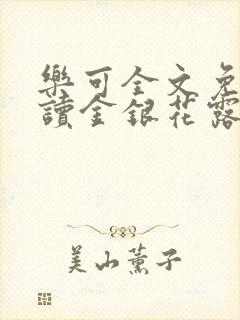 樂可全文免
讀金銀花露
美山薰子